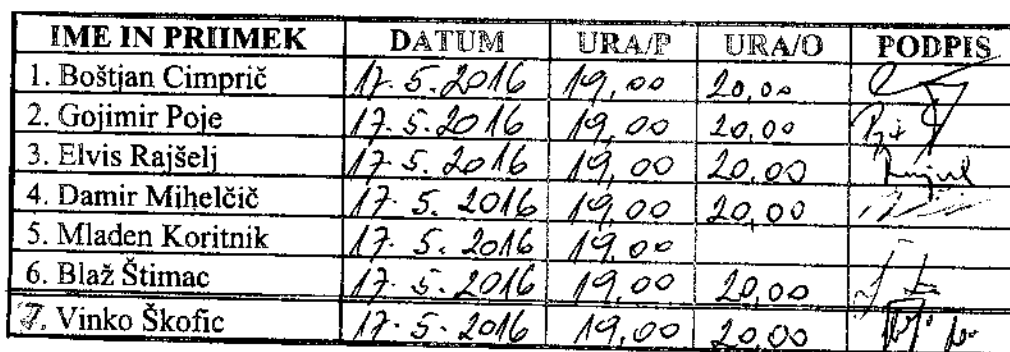 IME IN PRIIMEK DATUM URA/P URA/O PODPIS
1. Boštjan Cimprič 17. 5. 2016 19,00 20,00
2. Gojimir Poje 17. 5. 2016 19,00 20,00
3. Elvis Rajšelj 17. 5. 2016 19,00 20,00
4. Damir Mihelčič 17. 5. 2016 19,00 20,00
5. Mladen Koritnik 17. 5. 2016 19,00
6. Blaž Štimac 17. 5. 2016 19,00 20,00
7. Vinko Škofic 17. 5. 2016 19,00 20,00